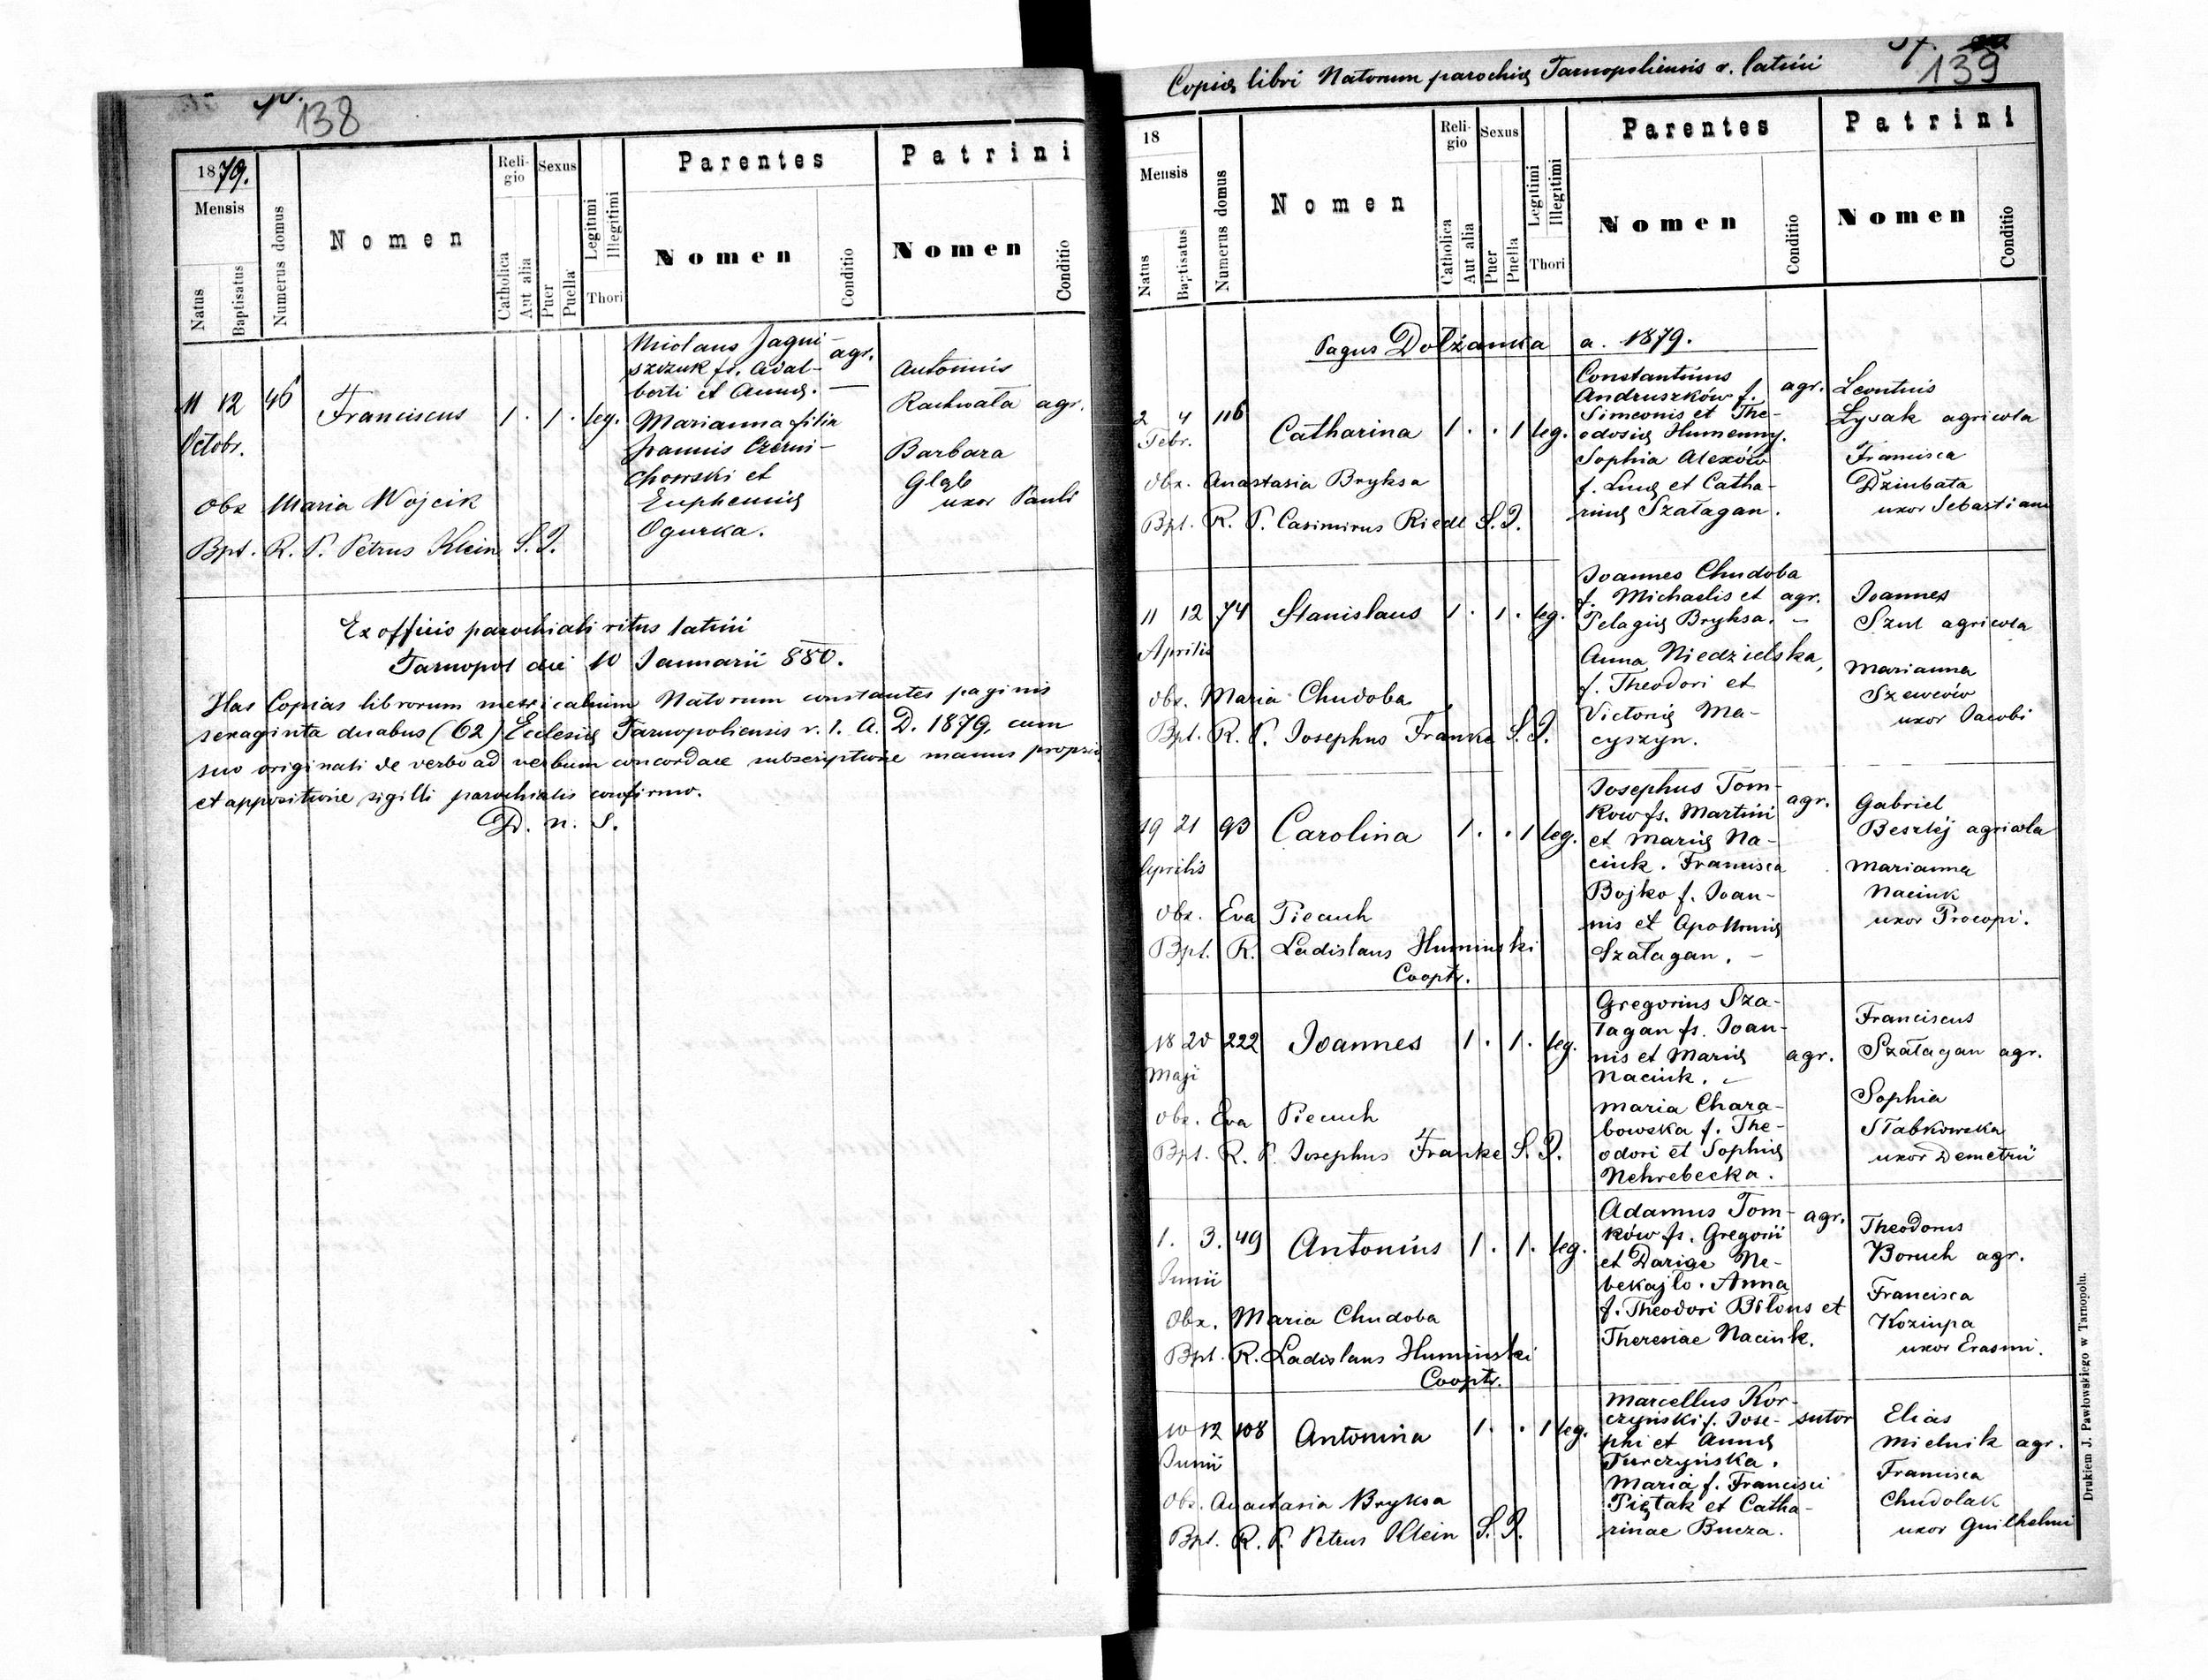 138
1879.
Mensis
Natus
Baptisatus
Numerus domus
Nomen
Religio
Catholica
Aut alia
Sexus
Puer
Puella
Legitimi
Illegitimi
Thori
Parentes
Nomen
Conditio
Patrini
Nomen
Conditio
11 12 46 Franciscus 1 . 1 . leg.
Octobr.
Nicolaus Jagni-
szczuk fs. Adal- agr.
berti et Annae.
Marianna filia
Joannis Czerni-
chowski et
Euphemiae
Ogurka.
Antonius
Rachwała agr.
Barbara
Głąb
uxor Pauli
Obx Maria Wojcik
Bpt. R. P. Petrus Klein S.J.
Ex officio parochiali ritus latini
Tarnopol die 10 Januarii 880.
Has Copias librorum metricalium Natorum constantes paginis
sexaginta duabus (62) Ecclesiae Tarnopoliensis r. l. A. D. 1879, cum
suo originali de verbo ad verbum concordare subscriptione manus propriae
et appositione sigilli parochialis confirmo.
D. n. S.
Copia libri Natorum parochiae Tarnopoliensis r. latini
139
18
Mensis
Natus
Baptisatus
Numerus domus
Nomen
Religio
Catholica
Aut alia
Sexus
Puer
Puella
Legitimi
Illegitimi
Thori
Parentes
Nomen
Conditio
Patrini
Nomen
Conditio
Pagus Dołżanka a. 1879.
2 4 116 Catharina 1 . . 1 leg.
Febr.
Constantinus
Andruszków f. agr.
Simeonis et The-
odosiae Humenny.
Sophia Alexów
f. Lucae et Catha-
rinae Szałagan.
Leontius
Łysak agricola
Francisca
Dziubata
uxor Sebastiani
Obx. Anastasia Bryksa
Bpt. R. P. Casimirus Riedl S.J.
11 12 74 Stanislaus 1 . 1 . leg.
Aprilis
Joannes Chudoba
f. Michaelis et agr.
Pelagiae Bryksa. -
Anna Niedzielska,
f. Theodori et
Victoriae Ma-
cyszyn.
Joannes
Szul agricola
Marianna
Szewców
uxor Jacobi
Obx. Maria Chudoba
Bpt. R. P. Josephus Franke S.J.
19 21 93 Carolina 1 . . 1 leg.
Aprilis
Josephus Tom-
kow fs. Martini agr.
et Mariae Na-
ciuk. Francisca
Bojko f. Joan-
nis et Apolloniae
Szałagan. -
Gabriel
Beszlej agricola
Marianna
Naciuk
uxor Procopi.
Obx. Eva Piecuch
Bpt. R. Ladislaus Huminski
Cooptr.
18 20 222 Joannes 1 . 1 . leg.
Maji
Gregorius Sza-
łagan fs. Joan-
nis et Mariae agr.
Naciuk. -
Maria Chara-
bowska f. The-
odori et Sophiae
Nehrebecka.
Franciscus
Szałagan agr.
Sophia
Słabkowska
uxor Demetrii
Obx. Eva Piecuch
Bpt. R. P. Josephus Franke S.J.
1. 3. 49 Antonius 1 . 1 . leg.
Junii
Adamus Tom- agr.
ków fs. Gregorii
et Dariae Ne-
bekajło. Anna
f. Theodori Biłous et
Theresiae Naciuk.
Theodorus
Boruch agr.
Francisca
Koziupa
uxor Erasmi.
Obx. Maria Chudoba
Bpt. R. Ladislaus Huminski
Cooptr.
10 12 108 Antonina 1 . . 1 leg.
Junii
Marcellus Kor-
czyński f. Jose- sutor
phi et Annae
Turczyńska.
Maria f. Francisci
Piętak et Catha-
rinae Bucza.
Elias
Mielnik agr.
Francisca
Chudolak
uxor Guilhelmi
Obx. Anastasia Bryksa
Bpt. R. P. Petrus Klein S.J.
Drukiem J. Pawłowskiego w Tarnopolu.